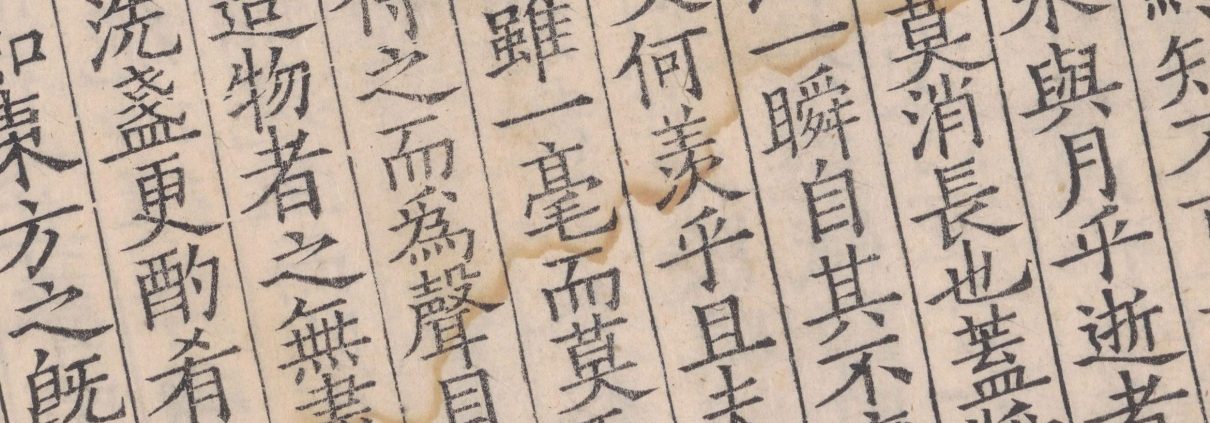 知不
水與月乎逝者
莫消長也蓋將
一瞬自其不
又何羨乎且夫
雖一毫而莫
得之而為聲目
造物者之無盡
洗盞更酌肴
知東方之既